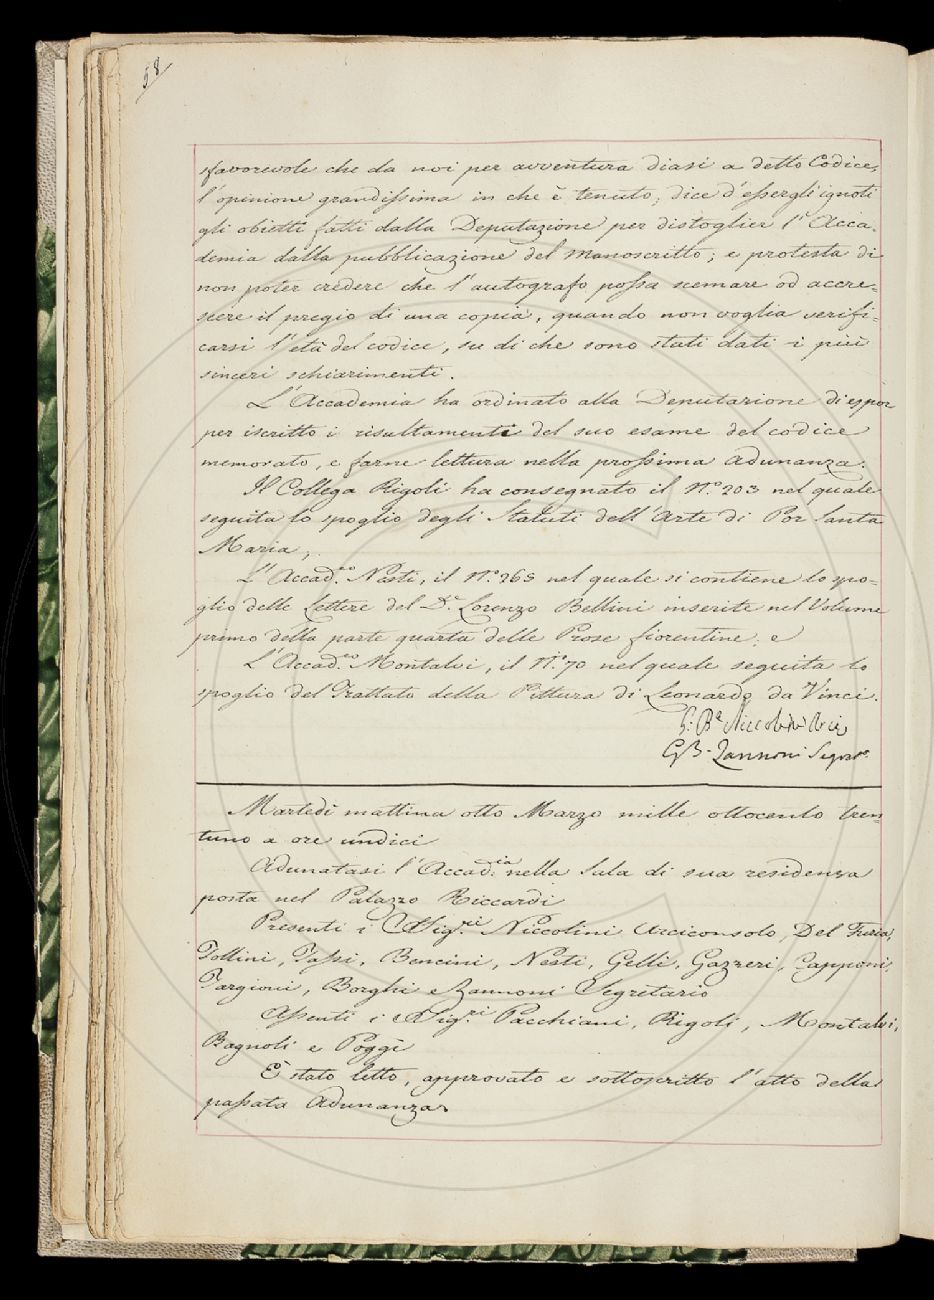 58
sfavorevole che da noi per avventura diasi a detto Codice,
l'opinione grandissima in che è tenuto; dice d'essergli ignoti
gli obietti fatti dalla Deputazione per distoglier l'Acca-
demia dalla pubblicazione del Manoscritto; e protesta di
non poter credere che l'autografo possa scemare od accre-
scere il pregio di una copia, quando non voglia verifi-
carsi l'età del codice, su di che sono stati dati i più
sinceri schiarimenti.
L'Accademia ha ordinato alla Deputazione di espor
per iscritto i risultamenti del suo esame del codice
memorato, e farne lettura nella prossima Adunanza.
Il Collega Rigoli ha consegnato il N.º 203 nel quale
seguita lo spoglio degli Statuti dell'Arte di Por Santa
Maria;
L'Accad.co Nesti, il N.º 265 nel quale si contiene lo spo-
glio delle Lettere del D.r Lorenzo Bellini inserite nel Volume
primo della parte quarta delle Prose fiorentine; e
L'Accad.co Montalvi, il N.º 70 nel quale seguita lo
spoglio del Trattato della Pittura di Leonardo da Vinci.
G. Ba Niccolini Arci
G B. Zannoni Segret.
Martedì mattina otto Marzo mille ottocento tren-
tuno a ore undici
Adunatasi l'Accad.ia nella Sala di sua residenza
posta nel Palazzo Riccardi
Presenti i Sig.ri Niccolini Arciconsolo, Del Furia,
Follini, Tassi, Bencini, Nesti, Gelli, Gazzeri, Capponi,
Targioni, Borghi e Zannoni Segretario
Assenti i Sig.ri Pacchiani, Rigoli, Montalvi,
Bagnoli e Poggi
È stato letto, approvato e sottoscritto l'atto della
passata Adunanza